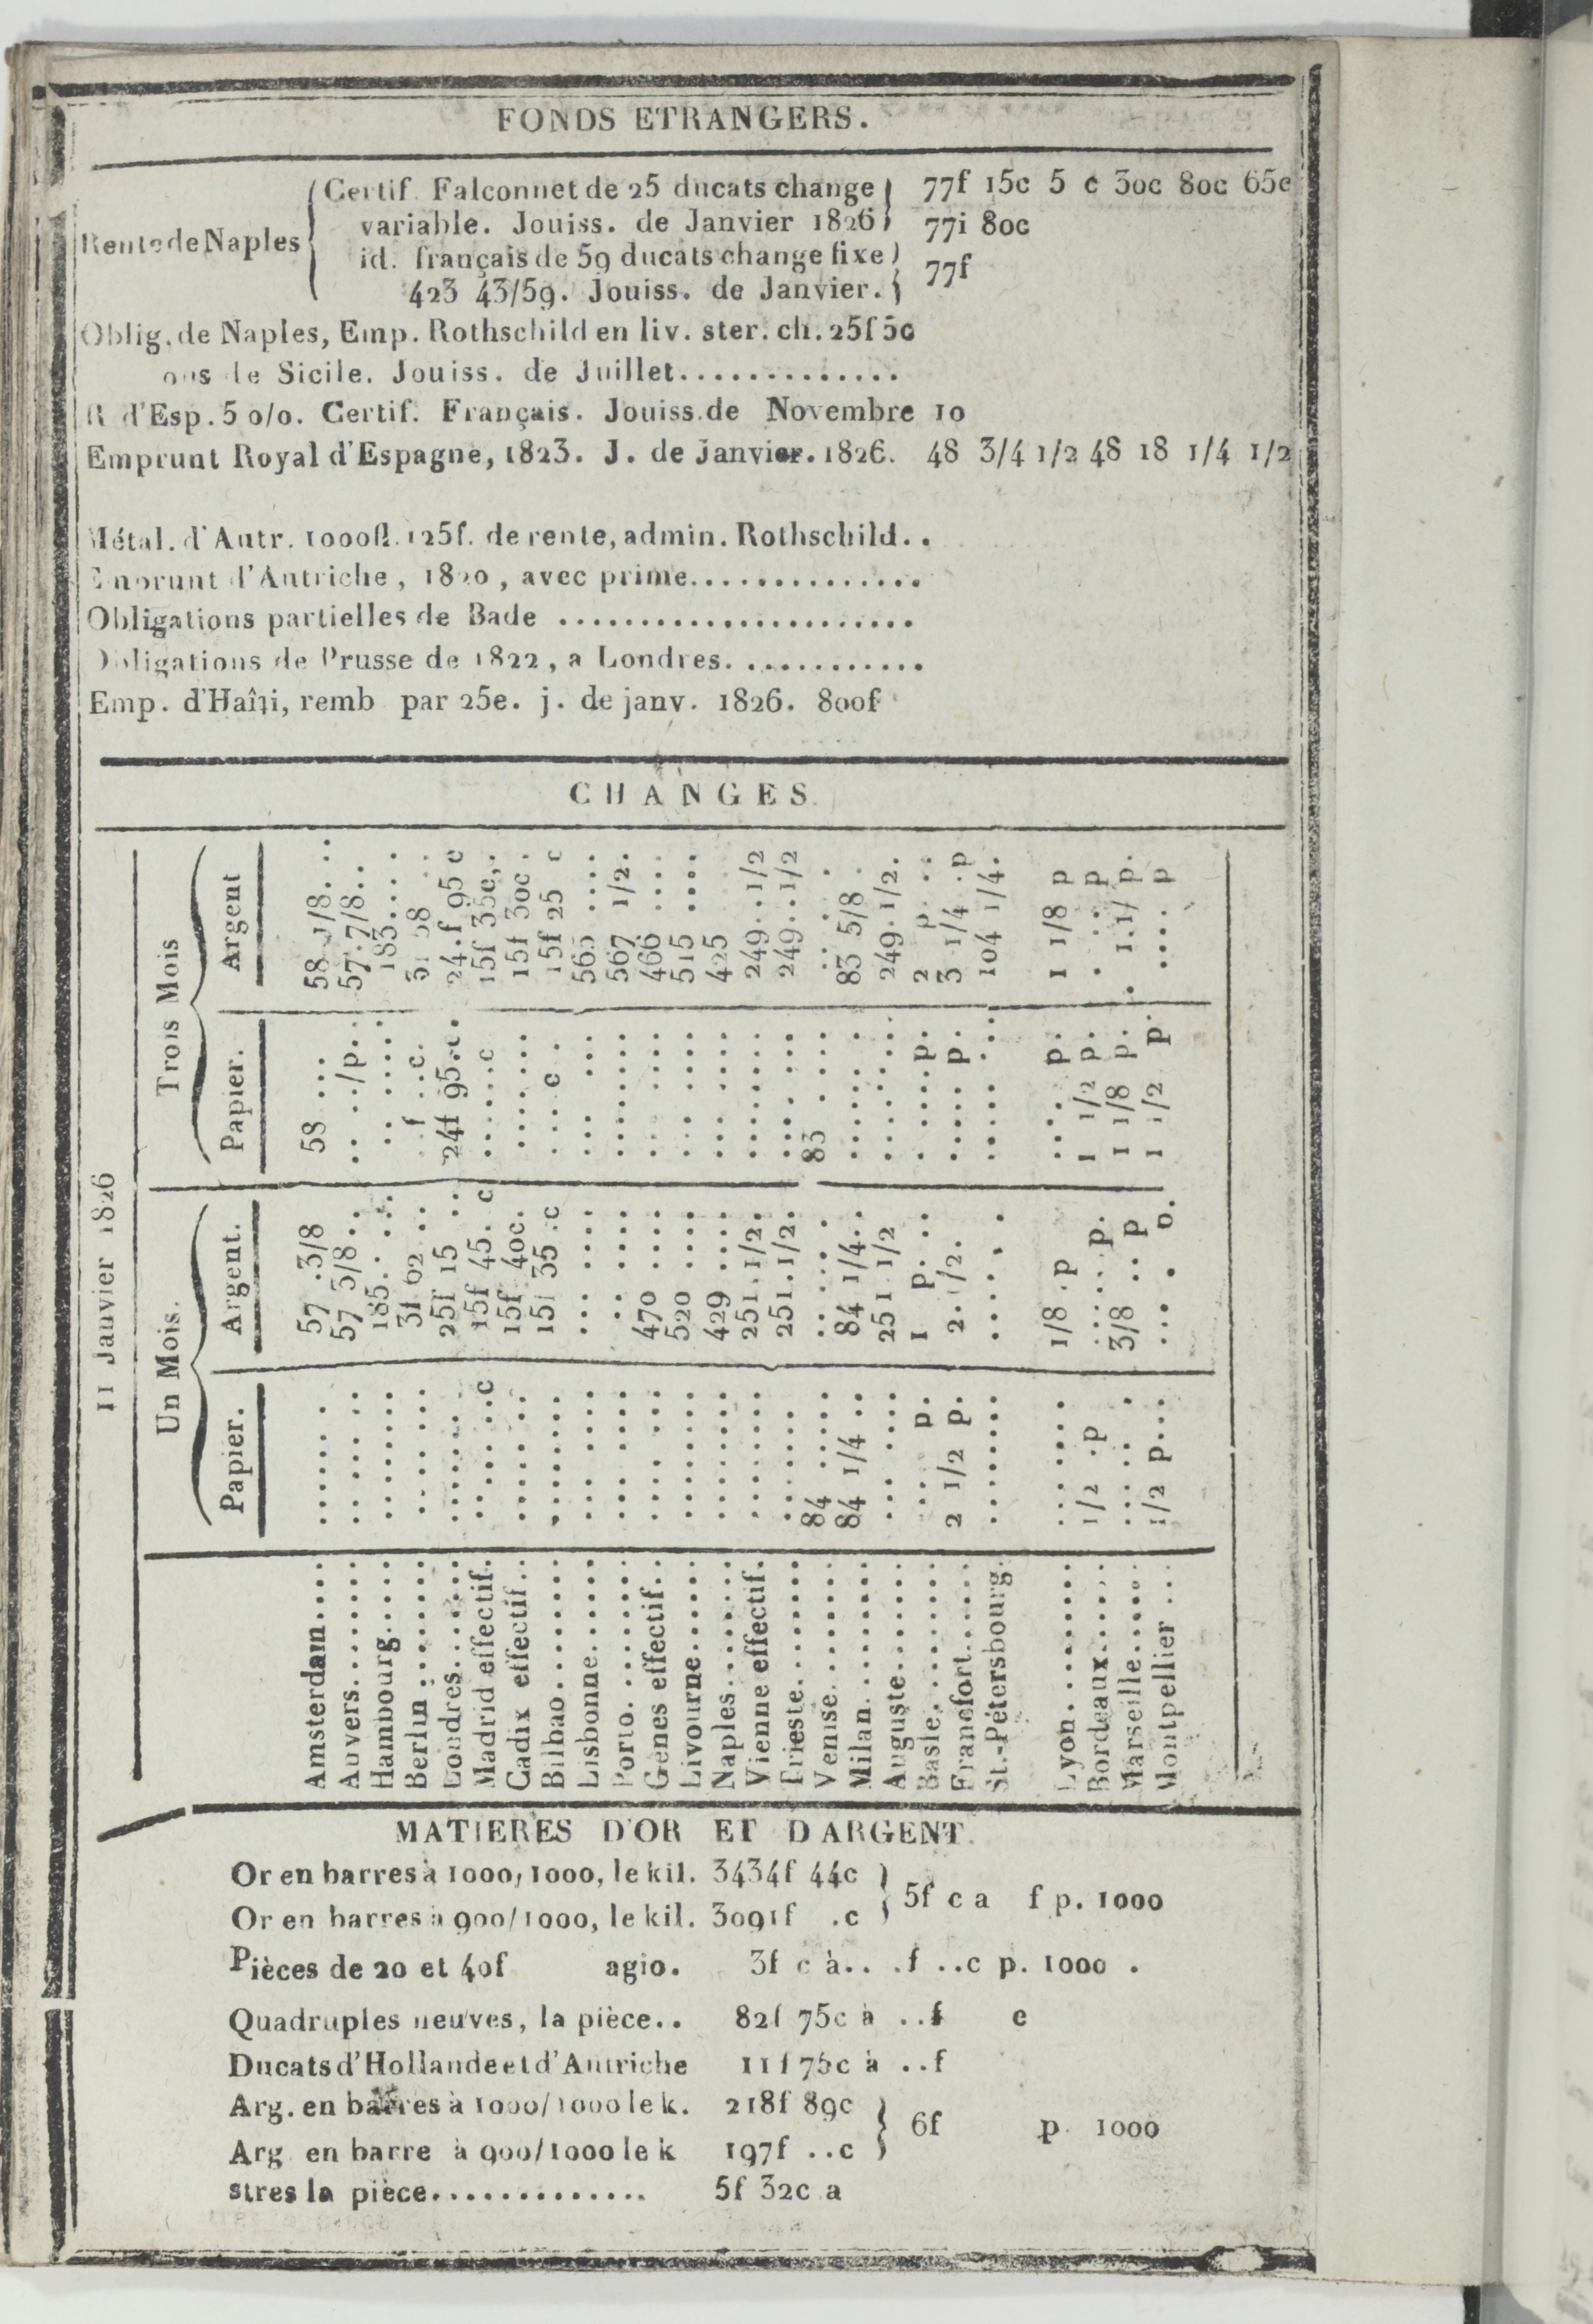 FONDS ETRANGERS.
Rente de Naples
Certif. Falconnet de 25 ducats change 77f 15c 5 c 30c 80c 65c
variable. Jouiss. de Janvier 1826 77i 80c
id. français de 59 ducats change fixe
423 43/59. Jouiss. de Janvier. 77f
Oblig. de Naples, Emp. Rothschild en liv. ster. ch. 25f 5c
ons de Sicile. Jouiss. de Juillet.............
R d'Esp. 5 o/o. Certif. Français. Jouiss. de Novembre 10
Emprunt Royal d'Espagne, 1823. J. de Janvier. 1826. 48 3/4 1/2 48 18 1/4 1/2
Métal. d'Autr. 1000fl. 125f. de rente, admin. Rothschild..
Emprunt d'Autriche, 1820, avec prime..............
Obligations partielles de Bade ......................
Obligations de Prusse de 1822, a Londres. ...........
Emp. d'Haîti, remb par 25e. j. de janv. 1826. 800f
CHANGES
11 Janvier 1826
Un Mois. Trois Mois
Papier. Argent. Papier. Argent
Amsterdam.... ....... 57 .3/8 58 ... 58 1/8...
Anvers....... ....... 57 5/8.. .. ../p. 57 7/8..
Hambourg..... ....... 185. ... ...... 183....
Berlin ....... ....... 3f 62 .. ..f ..c.
Londres....... ....... 25f 15 .. 24f 95.c. 24.f 95 c
Madrid effectif. ......c 15f 45. c ......c 15f 35c,.
Cadix effectif... ....... 15f 40c. ....... 15f 30c .
Bilbao....... ....... 15f 35 .c .... c . 15f 25 c
Lisbonne....... ....... ....... ...... 565 ....
Porto. ....... ....... ...... ....... 567 1/2.
Gènes effectif.. ....... 470 .... ...... 466 ....
Livourne...... ....... 520 .... ....... 515 ....
Naples....... ....... 429 .... ....... 425
Vienne effectif. ....... 251.1/2. ....... 249..1/2
Trieste....... ....... 251.1/2. ....... 249..1/2
Venise....... 84 ..... ...... 83 .... .. ..
Milan........ 84 1/4 .. 84 1/4.. ....... 83 5/8 .
Auguste....... ....... 251 1/2 ....... 249.1/2.
Basle........ ... p. 1 p. .. .....p. 2 p. ..
Francfort..... 2 1/2 p. 2. 1/2. ..... p. 3 1/4 .p
St.-Pétersbourg. ....... ..... ....... 104 1/4.
Lyon........ ....... 1/8 .p .... p. 1 1/8 p
Bordeaux..... 1/2 .p ..... p. 1 1/2 p. . .. p
Marseille..... ..... . 3/8 .. p 1 1/8 p. . 1.1/ p.
Montpellier ... 1/2 p... ... . o. 1 1/2 p. .... p
MATIERES D'OR ET D ARGENT.
Or en barres à 1000/1000, le kil. 3434f 44c
5f c a f p. 1000
Or en barres à 900/1000, le kil. 3091f .c
Pièces de 20 et 40f agio. 3f c à.. .f ..c p. 1000 .
Quadruples neuves, la pièce.. 82f 75c à ..f c
Ducats d'Hollande et d'Autriche 11f 75c à ..f
Arg. en barres à 1000/1000 le k. 218f 89c
6f p. 1000
Arg en barre à 900/1000 le k 197f ..c
stres la pièce............. 5f 32c a